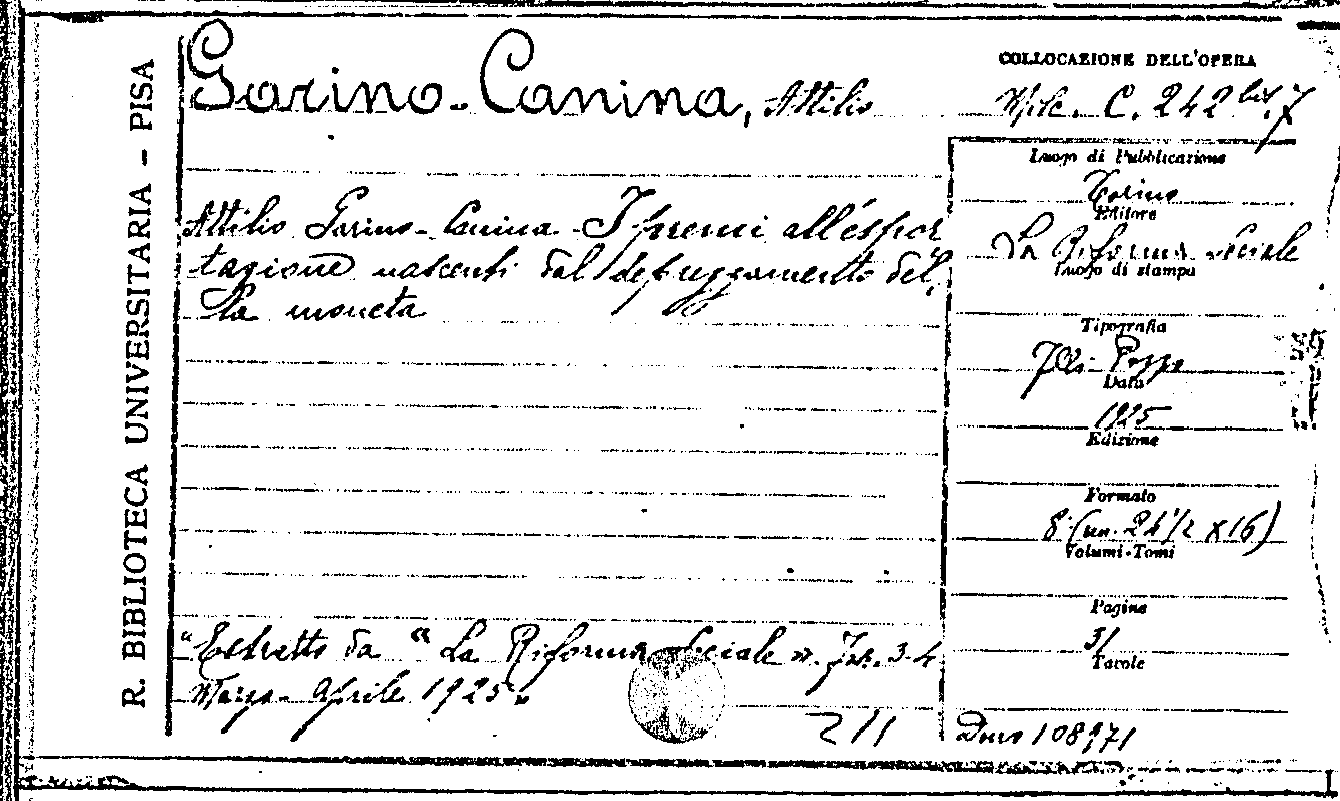 R. BIBLIOTECA UNIVERSITARIA - PISA
Garino-Canina, Attilio
COLLOCAZIONE DELL'OPERA
Misc. C. 242 bis.7
Attilio Garino-Canina - I premi all'espor
tazione nascenti dal deprezzamento del,
la moneta
Luogo di Pubblicazione
Torino
Editore
La Riforma Sociale
Luogo di stampa
Tipografia
Data
1925
Edizione
Formato
8° (cm. 24 1/2 x 16)
Volumi-Tomi
Pagine
31
Tavole
"Estratto da "La Riforma Sociale". Fasc. 3-4
Marzo-Aprile 1925"
211
Dono 108971